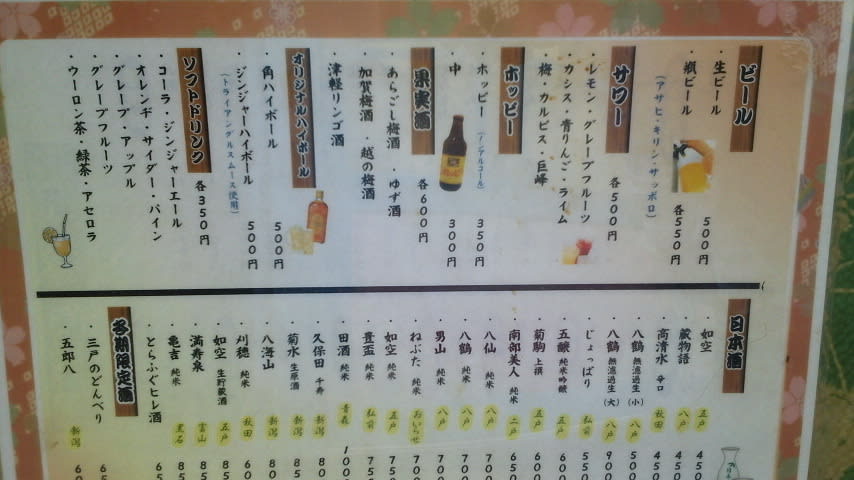 ビール
・生ビール 500円
・瓶ビール 各550円
（アサヒ・キリン・サッポロ）
サワー 各500円
・レモン・グレープフルーツ
・カシス・青りんご・ライム
・梅・カルピス・巨峰
ホッピー
・ホッピー（ノンアルコール） 350円
・中 300円
果実酒 各600円
・あらごし梅酒 ・ゆず酒
・加賀梅酒 ・越の梅酒
・津軽リンゴ酒
オリジナルハイボール
・角ハイボール 500円
・ジンジャーハイボール 500円
（トライアングルスムース使用）
ソフトドリンク 各350円
・コーラ・ジンジャーエール
・オレンヂ・サイダー・パイン
・グレープ・アップル
・グレープフルーツ
・ウーロン茶・緑茶・アセロラ
日本酒
・如空 五戸 450
・蔵物語 八戸 450
・高清水 辛口 秋田 450
・八鶴 無濾過生（小） 八戸 500
・八鶴 無濾過生（大） 八戸 900
・じょっぱり 弘前 550
・五醸 純米吟醸 五戸 600
・菊駒 上撰 五戸 600
・南部美人 純米 二戸 650
・八仙 純米 八戸 700
・八鶴 純米 八戸 700
・男山 純米 八戸 700
・ねぶた 純米 おいらせ 700
・如空 純米 五戸 750
・豊盃 純米 弘前 750
・田酒 純米 青森 1000
・久保田 千寿 新潟 80
・菊水 生原酒 新潟 85
・八海山 新潟 80
・刈穂 純米 秋田 60
・如空 生貯蔵酒 五戸 85
・満寿泉 富山 85
・亀吉 純米 黒石 85
・とらふぐヒレ酒 65
冬期限定酒
・三戸のどんべり 65
・五郎八 新潟 60